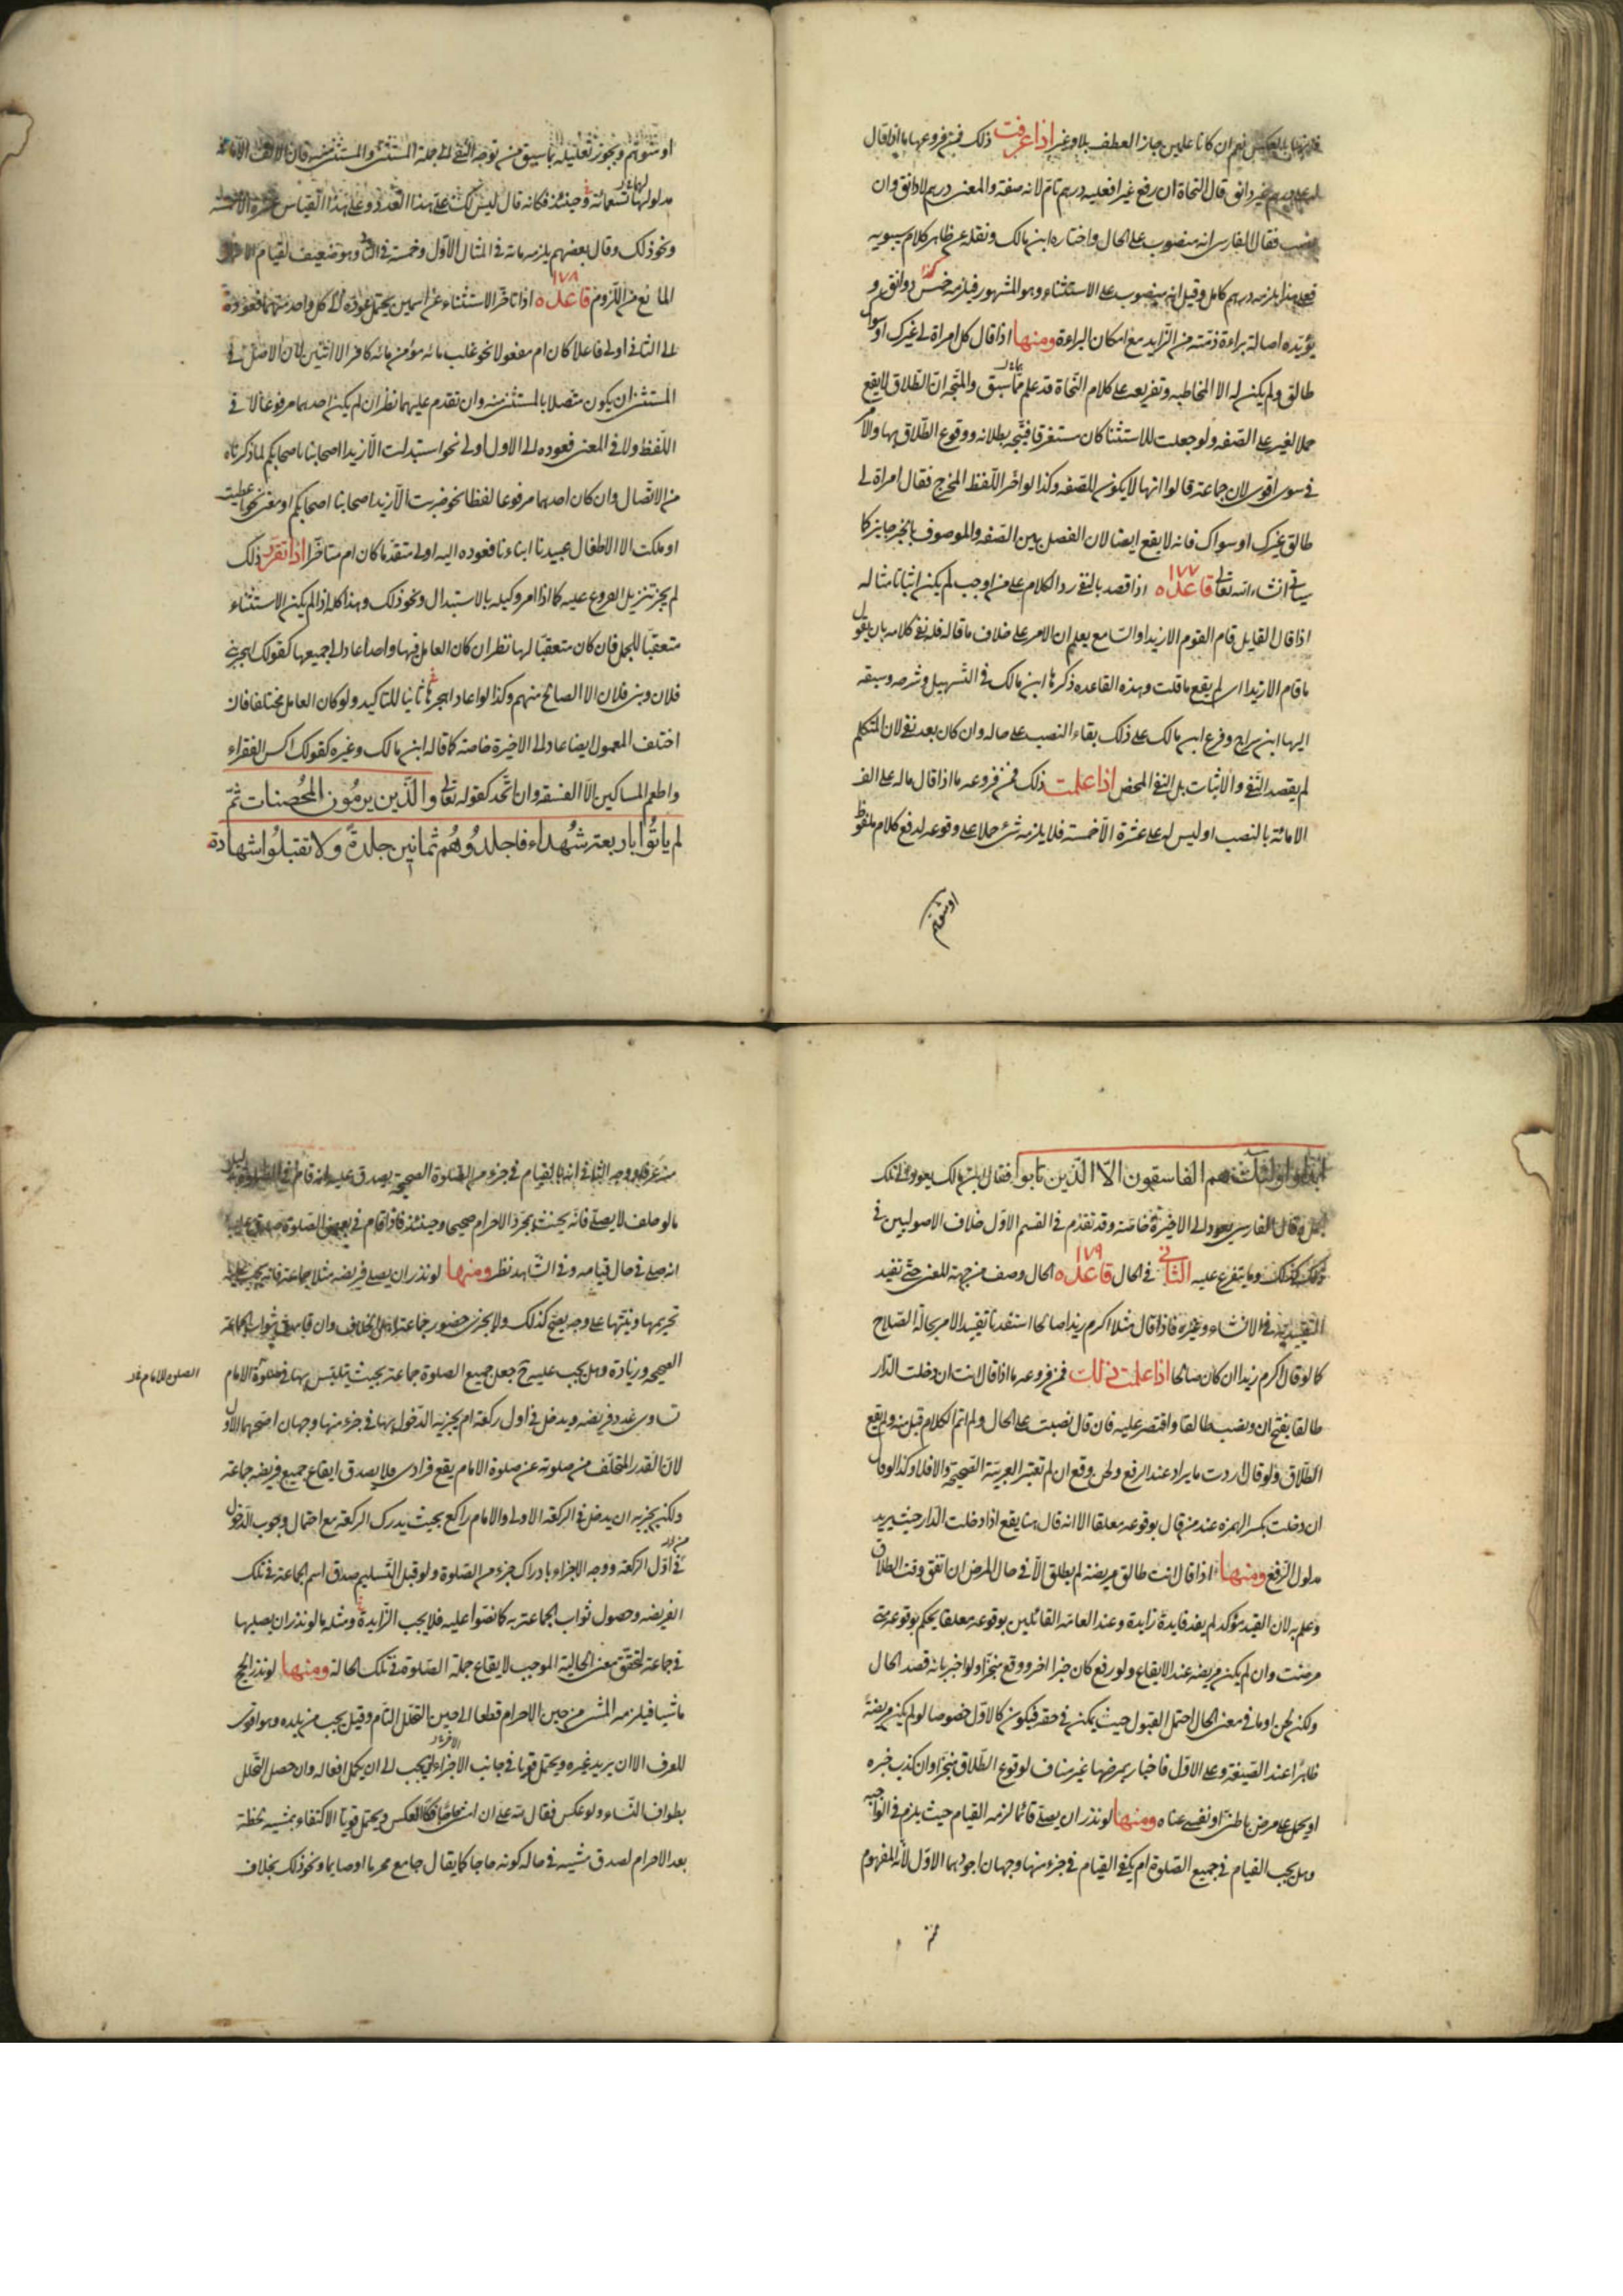 نعم ان كانا علمين جاز العطف بلا وغير اذا عرفت ذلك فمن فروعها ما اذا قال
غير دانق قال النحاة ان رفع غيرا فعليه درهم تام لانه صفة والمعنى درهم لا دانق وان
نصب فقال الفارسي انه منصوب على الحال واختاره ابن مالك ونقله عن ظاهر كلام سيبويه
فعلى هذا يلزمه درهم كامل وقيل انه منصوب على الاستثناء وهو المشهور فيلزمه خمس دوانق و
يؤيده اصالة براءة ذمته من الزايد مع امكان البراءة ومنها اذا قال كل امراة لي غيرك او سواك
طالق ولم يكن له الا المخاطبه وتفريعه على كلام النحاة قد علم مما سبق والمتجه ان الطلاق لا يقع
حملا لغير على الصفه ولو جعلت للاستثنا كان مستغرقا فيتجه بطلانه ووقوع الطلاق بها والامر
في سوى اقوى لان جماعة قالوا انها لا يكون للصفه وكذا لو اخر اللفظ المخرج فقال امراة لي
طالق غيرك او سواك فانه لا يقع ايضا لان الفصل بين الصفه والموصوف بالخبر جايز كما
سياتي انشاء الله تعالى قاعده ١٧٧ اذا قصد بالنفي رد الكلام على من اوجب لم يكن اثباتا مثاله
اذا قال القايل قام القوم الا زيدا والسامع يعلم ان الامر على خلاف ما قاله فله نفي كلامه بان يقول
ما قام الا زيدا اى لم يقع ما قلت وهذه القاعده ذكرها ابن مالك في التسهيل وشرحه وسبقه
اليها ابن سراج وفرع ابن مالك على ذلك بقاء النصب على حاله وان كان بعد نفي لان المتكلم
لم يقصد النفي والاثبات بل النفي المحض اذا علمت ذلك فمن فروعه ما اذا قال ماله على الف
الا مائة بالنصب او ليس له على عشرة الا خمسة فلا يلزمه شئ حملا على وقوعه لدفع كلام ملفوظ
او متوهم
او متوهم ويجوز تعليله بما سبق من توجه النفي الى جملة المستثنى والمستثنى منه فان الالف الا مائة
مدلولها تسعمائة وحينئذ فكانه قال ليس لك على هذا العدد وعلى هذا القياس
ونحو ذلك وقال بعضهم يلزمه مائة في المثال الاول وخمسة في الثاني وهو ضعيف لقيام
المانع من اللزوم قاعده ١٧٨ اذا تاخر الاستثناء عن اسمين يحتمل عوده الى كل واحد منهما فعوده
الى الثاني اولى فاعلا كان ام مفعولا نحو غلب مائه مؤمن مائه كافر الا اثنين لان الاصل في
المستثنى ان يكون متصلا بالمستثنى منه وان تقدم عليهما نظر ان لم يكن احدهما مرفوعا لا في
اللفظ ولا في المعنى فعوده الى الاول اولى نحو استبدلت الا زيدا اصحابنا باصحابكم لما ذكرناه
من الاتصال وان كان احدهما مرفوعا لفظا نحو ضربت الا زيدا اصحابنا اصحابكم او معنى نحو اعطيت
او ملكت الا الاطفال عبيدنا ابناءنا فعوده اليه اولى متقدما كان ام متاخرا اذا تقرر ذلك
لم يجز تنزيل الفروع عليه كما اذا امر وكيله بالاستبدال ونحو ذلك وهذا كله اذا لم يكن الاستثناء
متعقبا للجمل فان كان متعقبا لها نظر ان كان العامل فيها واحدا عاد الى جميعها كقولك اهجر بني
فلان وبني فلان الا الصالح منهم وكذا لو اعاد اهجر ثانيا للتاكيد ولو كان العامل مختلفا فان
اختلف المعمول ايضا عاد الى الاخيرة خاصة كما قاله ابن مالك وغيره كقولك اكس الفقراء
واطعم المساكين الا الفسقه وان اتحد كقوله تعالى والذين يرمون المحصنات ثم
لم ياتوا باربعة شهداء فاجلدوهم ثمانين جلدة ولا تقبلوا شهادة
ابدا واولئك هم الفاسقون الا الذين تابوا فقال ابن مالك يعود الى تلك
وقال الفارسي يعود الى الاخيرة خاصة وقد تقدم في القسم الاول خلاف الاصوليين في
ذلك وما يتفرع عليه الثاني في الحال قاعده ١٧٩ الحال وصف من جهة المعنى حتى تفيد
التقييد به في الانشاء وغيره فاذا قال مثلا اكرم زيدا صالحا استفدنا تقييد الامر بحالة الصلاح
كما لو قال اكرم زيدا ان كان صالحا اذا علمت ذلك فمن فروعه ما اذا قال انت ان دخلت الدار
طالقا بفتح ان ونصب طالقا واقتصر عليه فان قال نصبت على الحال ولم اتم الكلام قبل منه ولم يقع
الطلاق ولو قال اردت ما يراد عند الرفع ولحن وقع ان لم تعتبر العربية الصحيحة والا فلا وكذا لو قال
ان دخلت بكسر الهمزه عند من قال بوقوعه معلقا الا انه قال هنا يقع اذا دخلت الدار حيث يريد
مدلول الرفع ومنها اذا قال انت طالق مريضة لم يطلق الا في حال المرض ان اتفق وقت الطلاق
وعلم به لان القيد مؤكد لم يفد فايدة زايدة وعند العامه القائلين بوقوعه معلقا يحكم بوقوعه متى
مرضت وان لم يكن مريضه عند الايقاع ولو رفع كان خبرا اخر ووقع منجزا ولو اخبر بانه قصد الحال
ولكنه لحن او ما في معنى الحال احتمل القبول حيث يمكن في حقه فيكون كالاول خصوصا لو لم يكن مريضة
ظاهرا عند الصيغة وعلى الاول فاخباره بمرضها غير مناف لوقوع الطلاق منجزا وان كذب خبره
او يحمل على مرض باطني او نفسي عناه ومنها لو نذر ان يصلى قائما لزمه القيام حيث يلزم في الواجبه
وهل يجب القيام في جميع الصلوة ام يكفي القيام في جزء منها وجهان اجودهما الاول لانه المفهوم
من
من عرفا ووجه الثاني انه بالقيام في جزء من الصلوة الصحيحة يصدق عليه انه قام في الصلوة
ما لو حلف لا يصلى فانه يحنث بمجرد الاحرام صحيحا وحينئذ فاذا قام في بعض الصلوة صدق عليه
انه صلى في حال قيامه وفي الشاهد نظر ومنها لو نذر ان يصلى فريضه مثلا جماعة فانه يجب عليه
تحريمها ونيتها على وجه يصح كذلك ولا يجزي حضور جماعة اهل الخلاف وان قام به ثواب الجماعة
الصحيحه وزيادة وهل يجب عليه ح جعل جميع الصلوة جماعة بحيث يتلبس بها في صلوة الامام
تساوى عدد فريضه ويدخل في اول ركعة ام يجزيه الدخول بها في جزء منها وجهان اصحهما الاول
لان القدر المتخلف من صلوته عن صلوة الامام يقع فرادى فلا يصدق ايقاع جميع فريضه جماعة
ولكن يجزيه ان يدخل في الركعة الاولى والامام راكع بحيث يدرك الركعة مع احتمال وجوب الدخول
في اول الركعة ووجه الاجزاء بادراك جزء من الصلوة ولو قبل التسليم صدق اسم الجماعة في تلك
الفريضه وحصول ثواب الجماعة به كما نصوا عليه فلا يجب الزايدة ومثله ما لو نذر ان يصليها
في جماعة لتحقق معنى الحالية الموجب لايقاع جملة الصلوة في تلك الحالة ومنها لو نذر الحج
ماشيا فيلزمه المشى من حين الاحرام قطعا الى حين التحلل التام وقيل يجب من بلده وهو اقوى
للعرف الا ان يريد غيره ويحتمل قويا في جانب الاجزاء يجب الى ان يكمل افعاله وان حصل التحلل
بطواف النساء ولو عكس فقال لله على ان امشى حاجا فكالعكس ويحتمل قويا الاكتفاء بمشيه لحظة
بعد الاحرام لصدق مشيه في حاله كونه حاجا كما يقال جامع محرما او صايما ونحو ذلك بخلاف